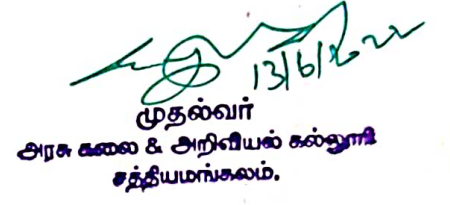 13/6/2022
முதல்வர்
அரசு கலை & அறிவியல் கல்லூரி
சத்தியமங்கலம்.